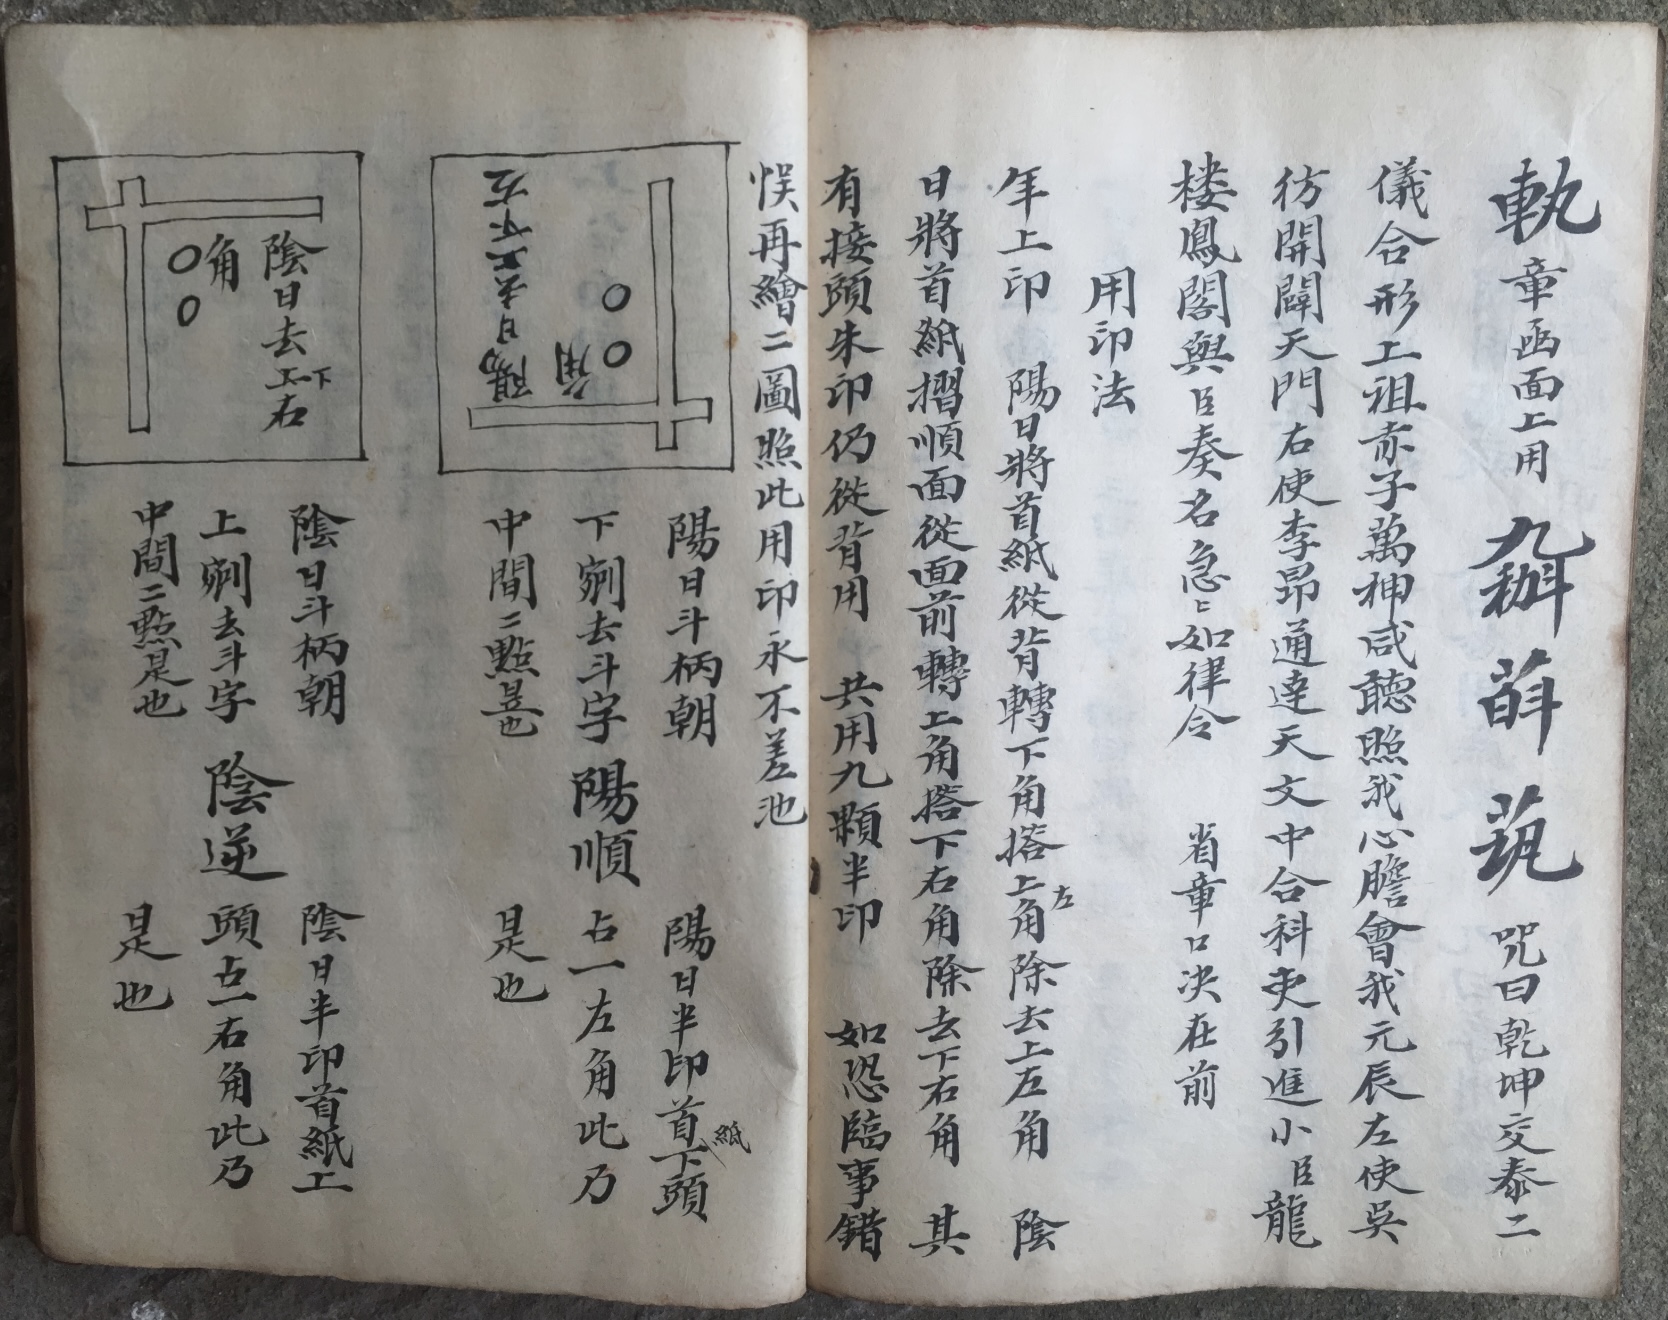 執章函面上用 咒曰乾坤交泰二
儀合形上祖赤子萬神咸聽照我心膽會我元辰左使吳
彷開闢天門右使李昂通達天文中合科吏引進小臣龍
楼鳳閣與臣奏名急〻如律令 省章口决在前
用印法
年上印 陽日將首紙從背轉下角搭上左角除去上左角 陰
日將首紙摺順面從面前轉上角搭下右角除去下右角 其
有接頭朱印仍從背用 共用九顆半印 如恐臨事錯
悮再繪二圖照此用印永不差池
陽日去上下左
角
陽日斗柄朝
下剜去斗字
中間二點是也
陽順
陽日半印首紙下頭
占一左角此乃
是也
陰日去上下右
角
陰日斗柄朝
上剜去斗字
中間二點是也
陰逆
陰日半印首紙上
頭占一右角此乃
是也